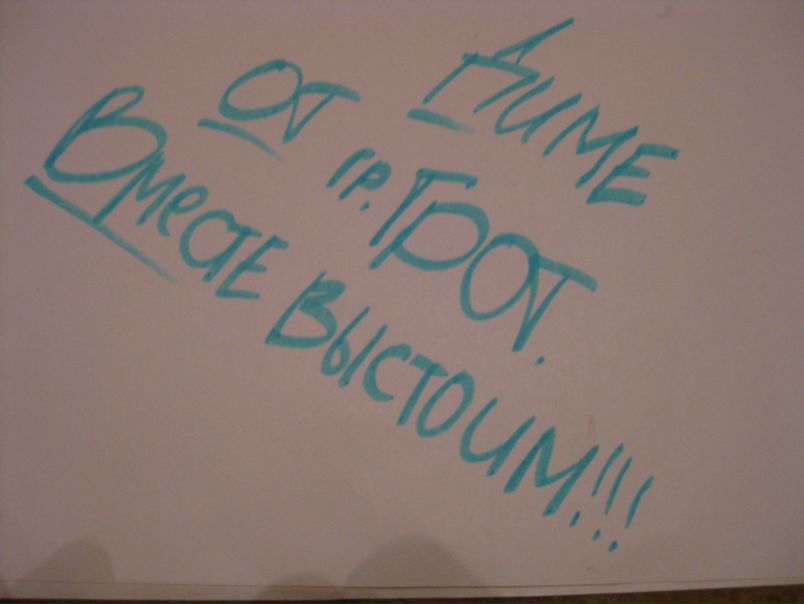 Диме
от гр. Грот.
Вместе выстоим!!!